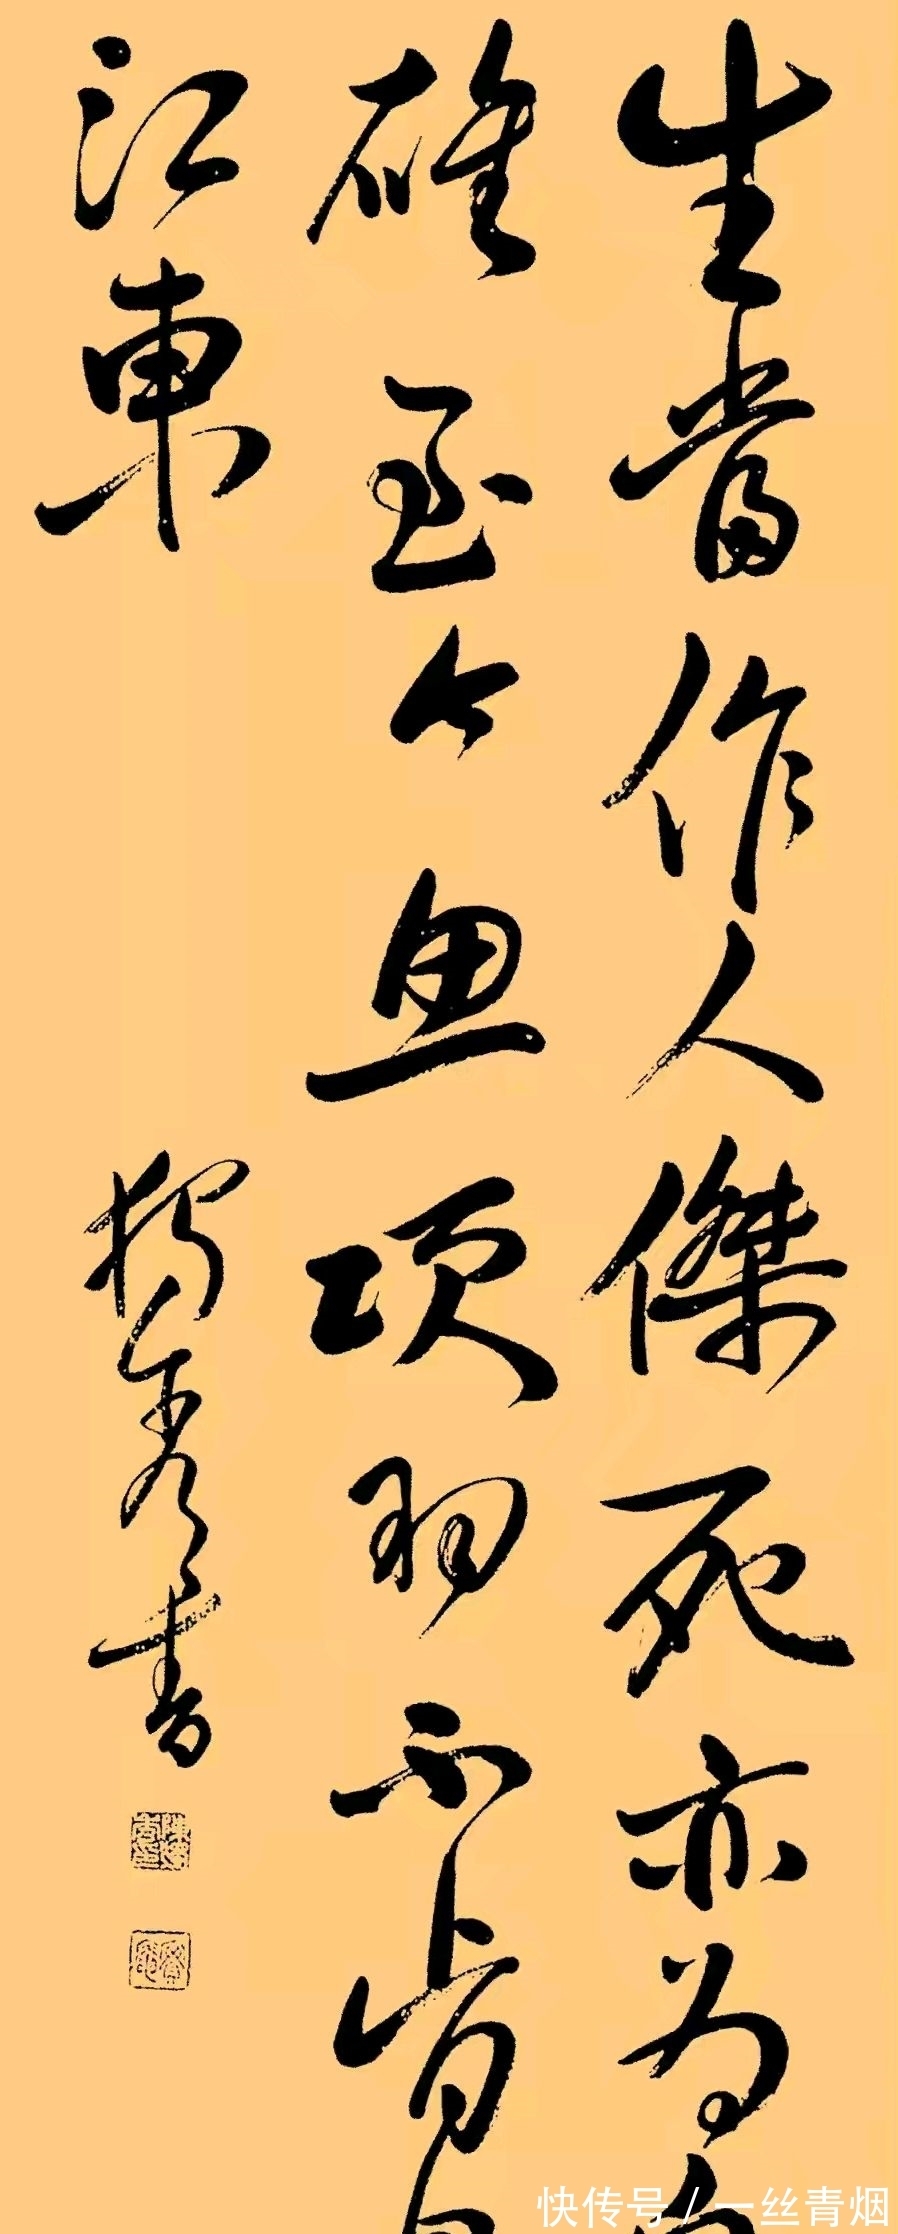 生當作人傑死亦為
雄至今思項羽不肯
江東
獨秀書
快传号 / 一丝青烟